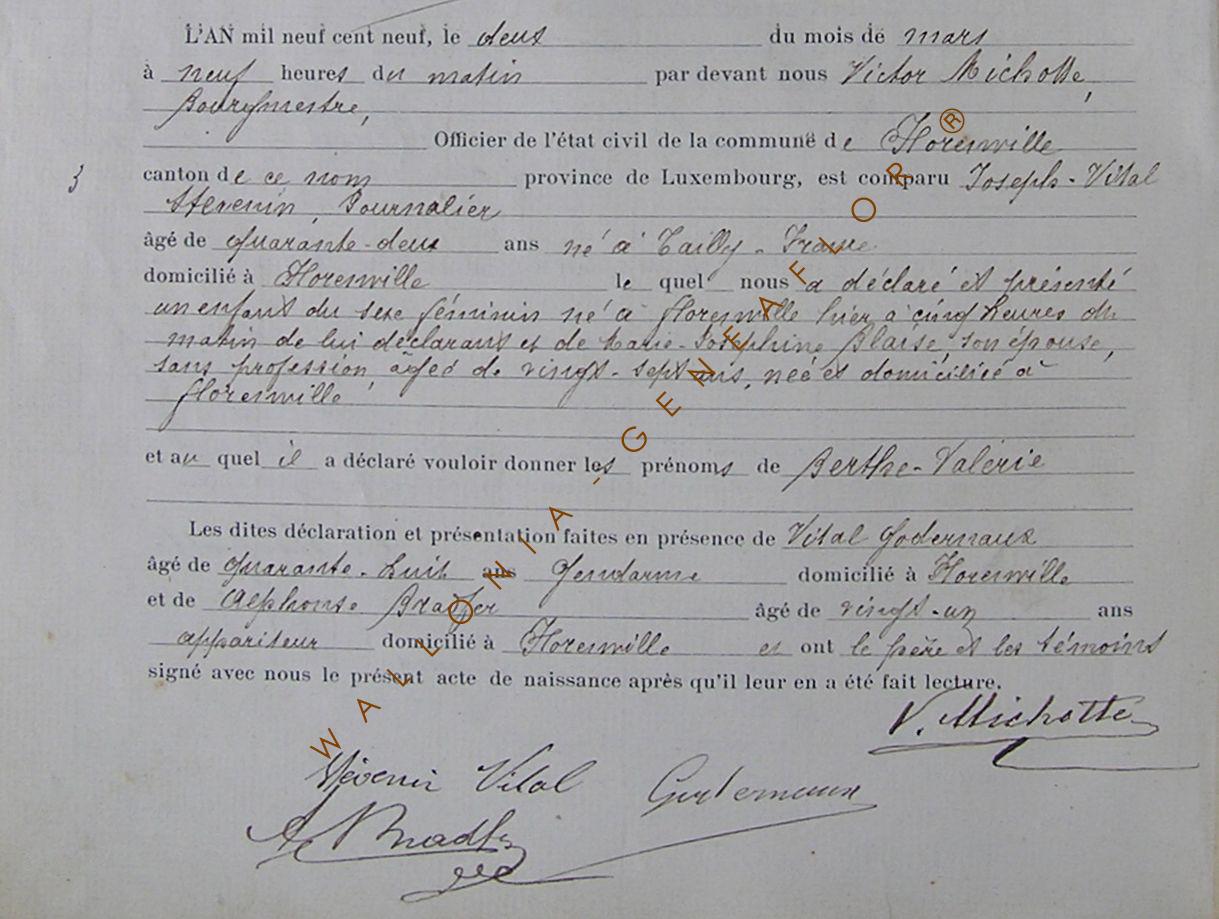 L'AN mil neuf cent neuf, le deux du mois de mars
à neuf heures du matin par devant nous Victor Michotte,
Bourgmestre,
Officier de l'état civil de la commune de Florenville
3 canton de ce nom province de Luxembourg, est comparu Joseph-Vital
Stevenin, Journalier
âgé de quarante-deux ans né à Tailly - France
domicilié à Florenville le quel nous a déclaré et présenté
un enfant du sexe féminin né à Florenville hier à cinq heures du
matin de lui déclarant et de Marie-Joséphine Blaise, son épouse,
sans profession, âgée de vingt-sept ans, née et domiciliée à
Florenville
et au quel il a déclaré vouloir donner les prénoms de Berthe-Valérie
Les dites déclaration et présentation faites en présence de Vital Godernaux
âgé de quarante-huit ans Gendarme domicilié à Florenville
et de Alphonse âgé de vingt-un ans
appariteur domicilié à Florenville et ont le père et les témoins
signé avec nous le présent acte de naissance après qu'il leur en a été fait lecture.
V. Michotte
Stévenin Vital
A.
WALLONIA-GENEAFLOR®